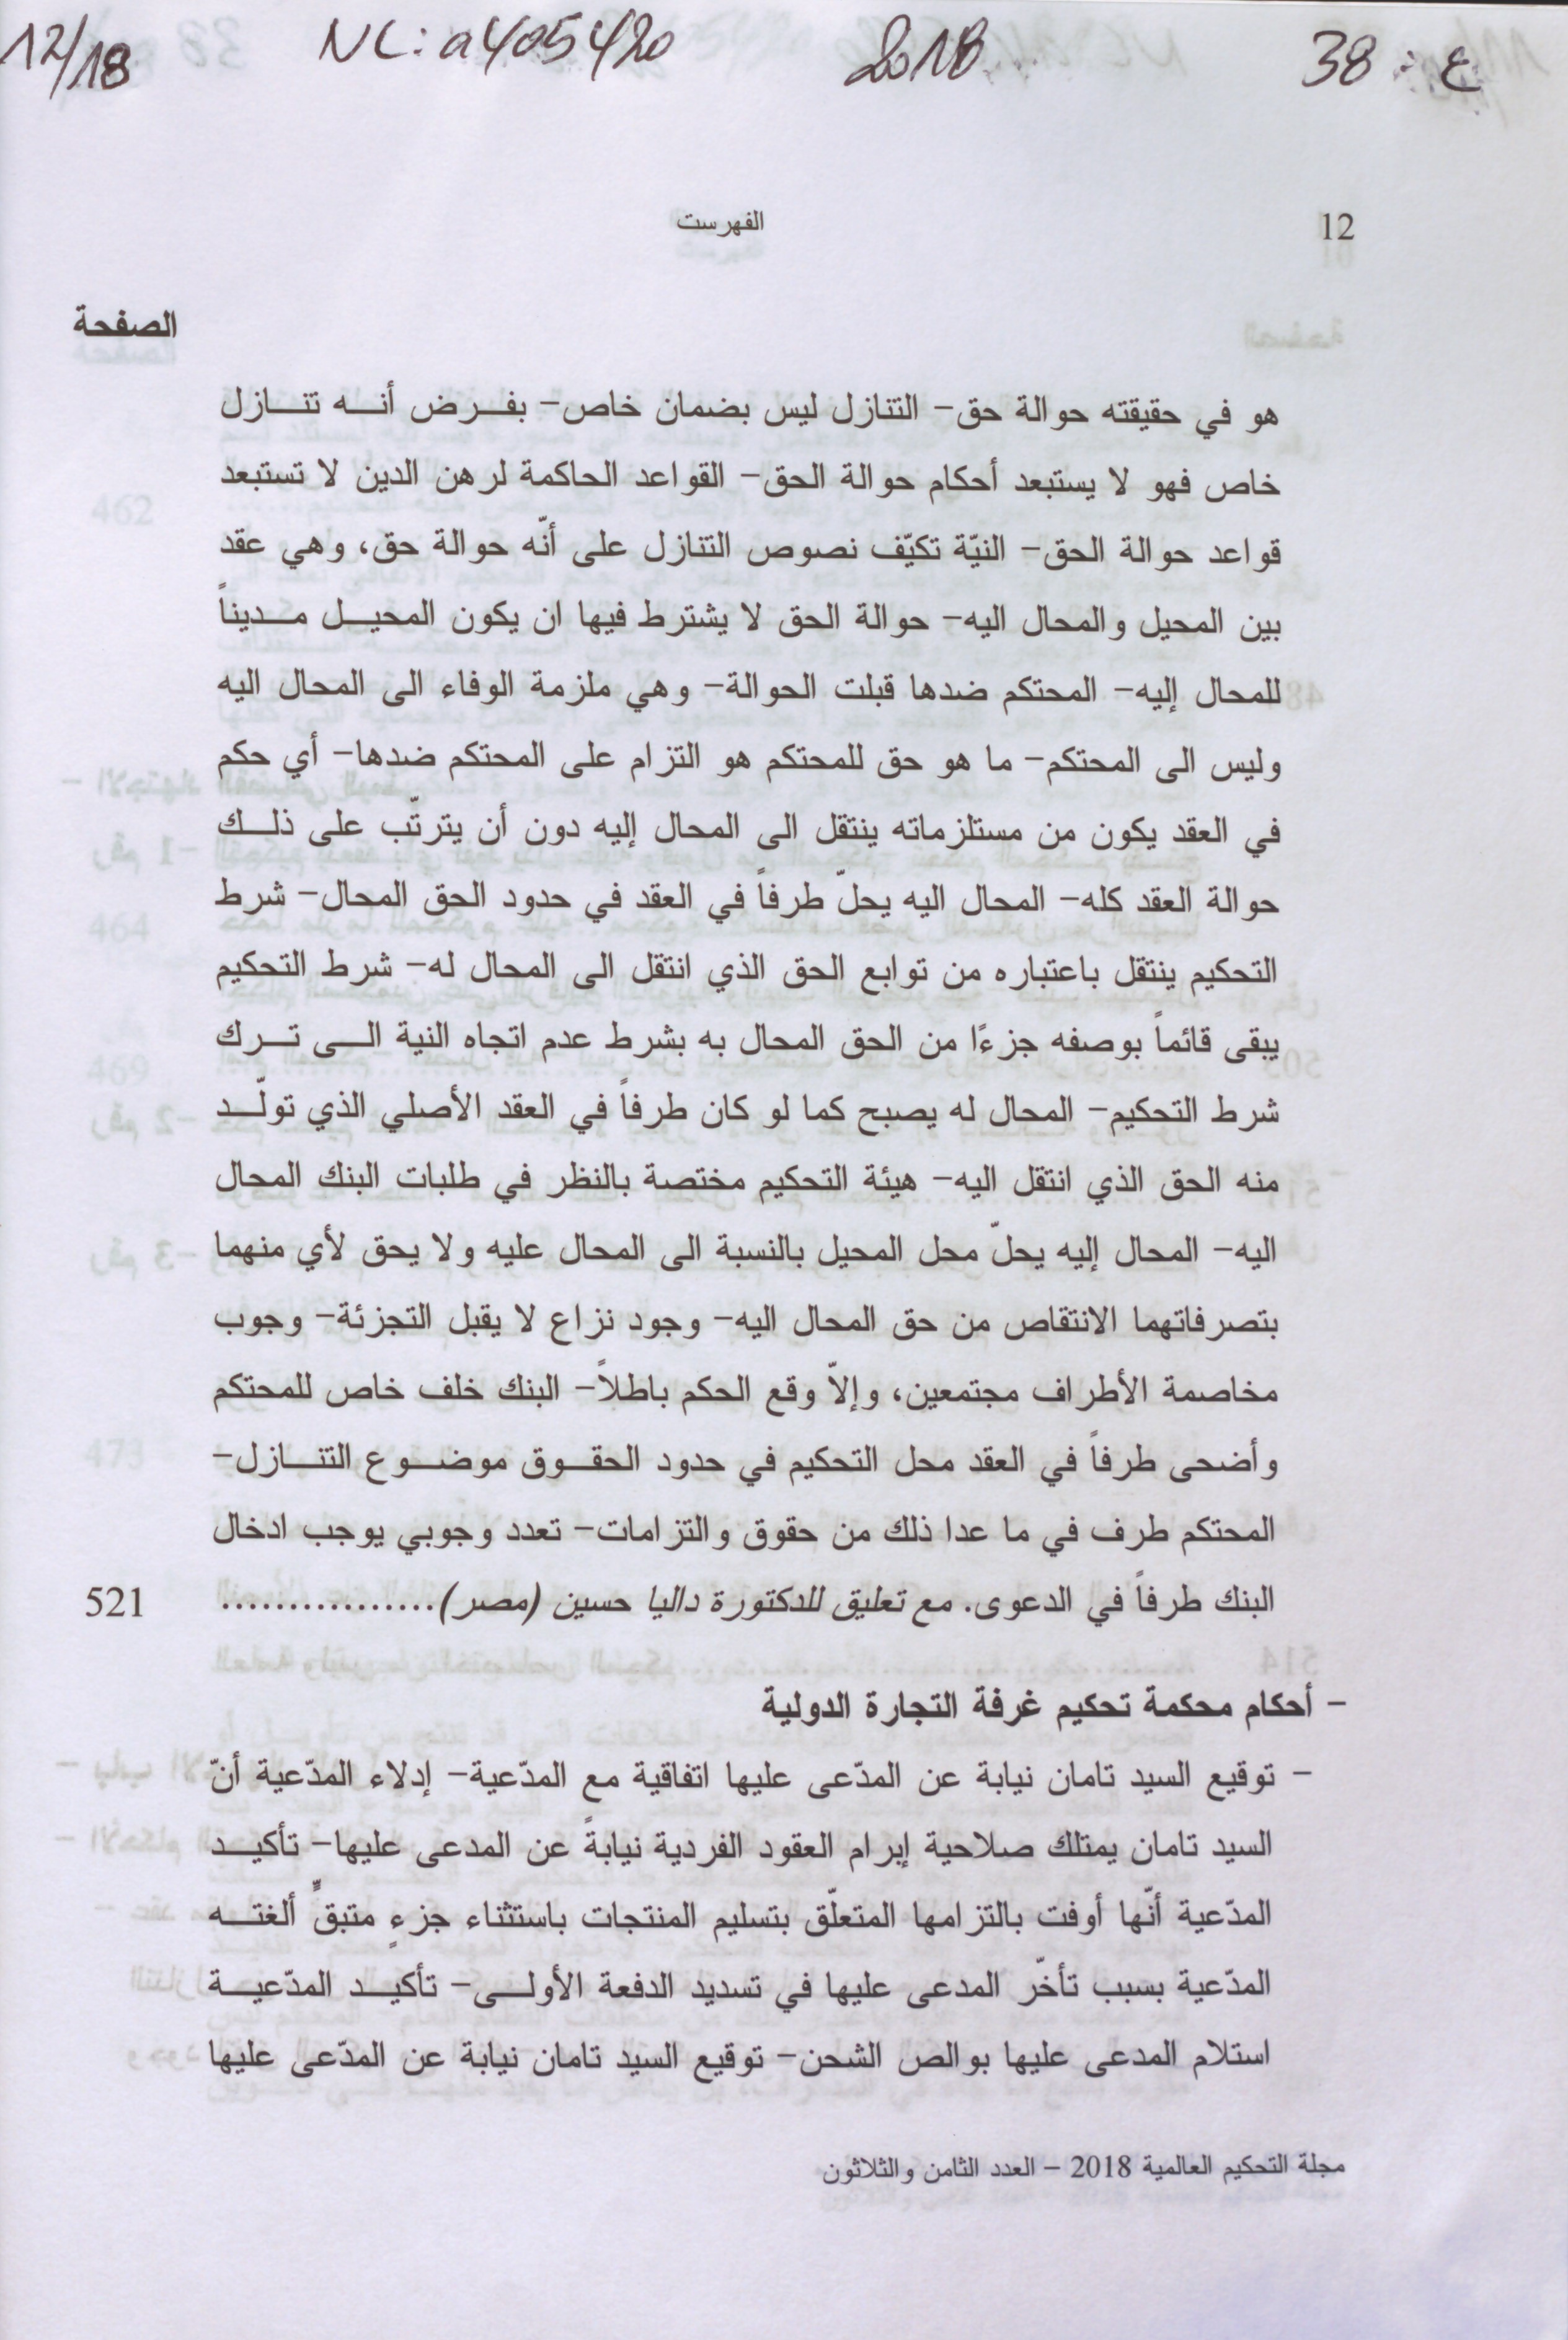 ع : 38 2018 NC: a405420 12/18
12 الفهرست
الصفحة
هو في حقيقته حوالة حق- التنازل ليس بضمان خاص- بفرض أنه تنازل
خاص فهو لا يستبعد أحكام حوالة الحق- القواعد الحاكمة لرهن الدين لا تستبعد
قواعد حوالة الحق- النيّة تكيّف نصوص التنازل على أنّه حوالة حق، وهي عقد
بين المحيل والمحال اليه- حوالة الحق لا يشترط فيها ان يكون المحيل مديناً
للمحال إليه- المحتكم ضدها قبلت الحوالة- وهي ملزمة الوفاء الى المحال اليه
وليس الى المحتكم- ما هو حق للمحتكم هو التزام على المحتكم ضدها- أي حكم
في العقد يكون من مستلزماته ينتقل الى المحال إليه دون أن يترتّب على ذلك
حوالة العقد كله- المحال اليه يحلّ طرفاً في العقد في حدود الحق المحال- شرط
التحكيم ينتقل باعتباره من توابع الحق الذي انتقل الى المحال له- شرط التحكيم
يبقى قائماً بوصفه جزءًا من الحق المحال به بشرط عدم اتجاه النية الى ترك
شرط التحكيم- المحال له يصبح كما لو كان طرفاً في العقد الأصلي الذي تولّد
منه الحق الذي انتقل اليه- هيئة التحكيم مختصة بالنظر في طلبات البنك المحال
اليه- المحال إليه يحلّ محل المحيل بالنسبة الى المحال عليه ولا يحق لأي منهما
بتصرفاتهما الانتقاص من حق المحال اليه- وجود نزاع لا يقبل التجزئة- وجوب
مخاصمة الأطراف مجتمعين، وإلاّ وقع الحكم باطلاً- البنك خلف خاص للمحتكم
وأضحى طرفاً في العقد محل التحكيم في حدود الحقوق موضوع التنازل-
المحتكم طرف في ما عدا ذلك من حقوق والتزامات- تعدد وجوبي يوجب ادخال
البنك طرفاً في الدعوى. مع تعليق للدكتورة داليا حسين (مصر)................ 521
- أحكام محكمة تحكيم غرفة التجارة الدولية
- توقيع السيد تامان نيابة عن المدّعى عليها اتفاقية مع المدّعية- إدلاء المدّعية أنّ
السيد تامان يمتلك صلاحية إبرام العقود الفردية نيابةً عن المدعى عليها- تأكيد
المدّعية أنّها أوفت بالتزامها المتعلّق بتسليم المنتجات باستثناء جزءٍ متبقٍّ ألغته
المدّعية بسبب تأخّر المدعى عليها في تسديد الدفعة الأولى- تأكيد المدّعية
استلام المدعى عليها بوالص الشحن- توقيع السيد تامان نيابة عن المدّعى عليها
مجلة التحكيم العالمية 2018 - العدد الثامن والثلاثون